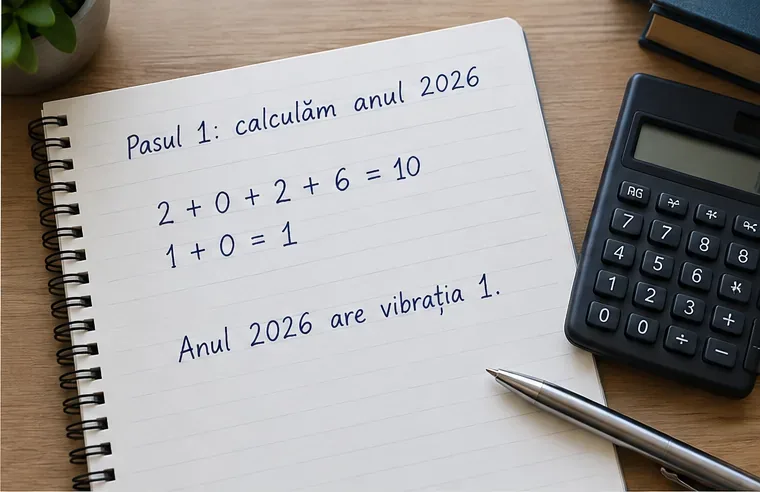 Pasul 1: calculăm anul 2026
2 + 0 + 2 + 6 = 10
1 + 0 = 1
Anul 2026 are vibrația 1.
7 7 8 8
4 5 6
1 2 3 +
0 0 ÷ −